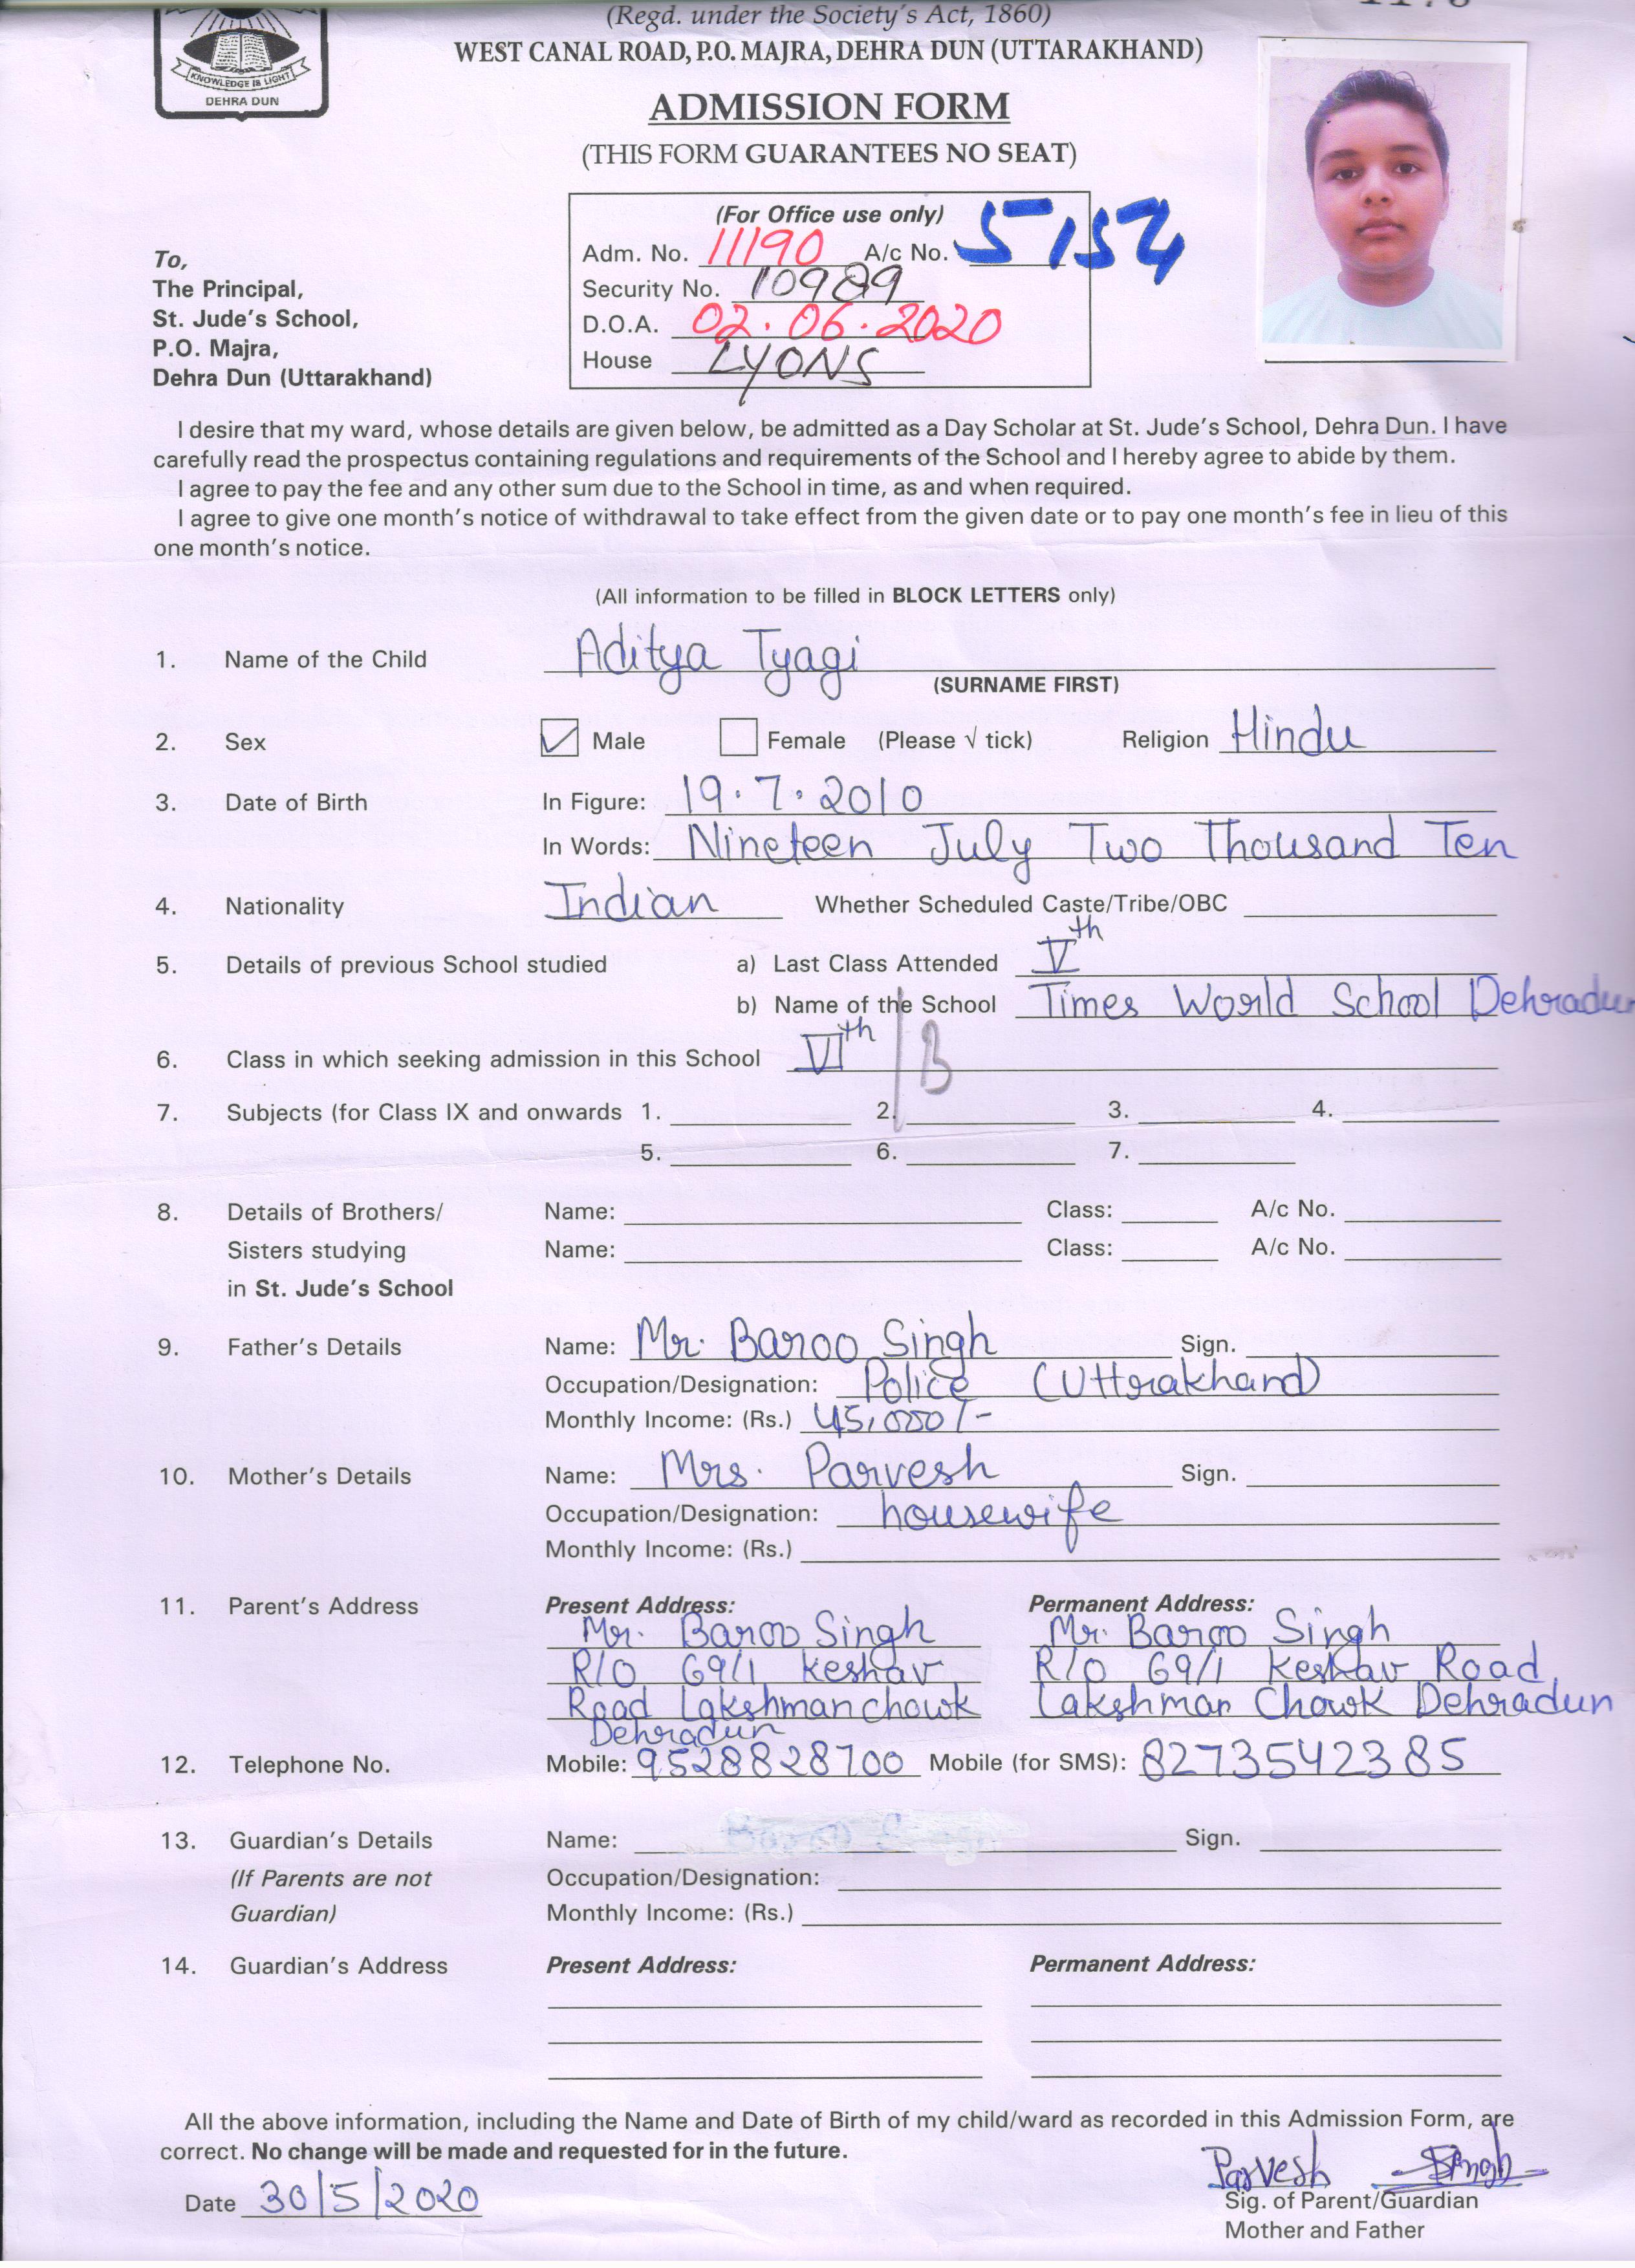 (Regd. under the Society's Act, 1860)
WEST CANAL ROAD, P.O. MAJRA, DEHRA DUN (UTTARAKHAND)
KNOWLEDGE IS LIGHT
DEHRA DUN
ADMISSION FORM
(THIS FORM GUARANTEES NO SEAT)
(For Office use only)
Adm. No. 11190 A/c No. 5154
Security No. 10989
D.O.A. 02.06.2020
House LYONS
To,
The Principal,
St. Jude's School,
P.O. Majra,
Dehra Dun (Uttarakhand)
I desire that my ward, whose details are given below, be admitted as a Day Scholar at St. Jude's School, Dehra Dun. I have
carefully read the prospectus containing regulations and requirements of the School and I hereby agree to abide by them.
I agree to pay the fee and any other sum due to the School in time, as and when required.
I agree to give one month's notice of withdrawal to take effect from the given date or to pay one month's fee in lieu of this
one month's notice.
(All information to be filled in BLOCK LETTERS only)
1. Name of the Child Aditya Tyagi
(SURNAME FIRST)
2. Sex Male Female (Please √ tick) Religion Hindu
3. Date of Birth In Figure: 19.7.2010
In Words: Nineteen July Two Thousand Ten
4. Nationality Indian Whether Scheduled Caste/Tribe/OBC
5. Details of previous School studied a) Last Class Attended Vth
b) Name of the School Times World School Dehradun
6. Class in which seeking admission in this School VIth / B
7. Subjects (for Class IX and onwards 1. 2. 3. 4.
5. 6. 7.
8. Details of Brothers/ Name: Class: A/c No.
Sisters studying Name: Class: A/c No.
in St. Jude's School
9. Father's Details Name: Mr. Baroo Singh Sign.
Occupation/Designation: Police (Uttrakhand)
Monthly Income: (Rs.) 45,000/-
10. Mother's Details Name: Mrs. Parvesh Sign.
Occupation/Designation: housewife
Monthly Income: (Rs.)
11. Parent's Address Present Address: Permanent Address:
Mr. Baroo Singh Mr. Baroo Singh
R/O 69/1 Keshav R/o 69/1 Keshav Road
Road Lakshmanchowk Lakshman Chowk Dehradun
Dehradun
12. Telephone No. Mobile: 9528828700 Mobile (for SMS): 8273542385
13. Guardian's Details Name: Sign.
(If Parents are not Occupation/Designation:
Guardian) Monthly Income: (Rs.)
14. Guardian's Address Present Address: Permanent Address:
All the above information, including the Name and Date of Birth of my child/ward as recorded in this Admission Form, are
correct. No change will be made and requested for in the future.
Parvesh Singh
Date 30/5/2020
Sig. of Parent/Guardian
Mother and Father